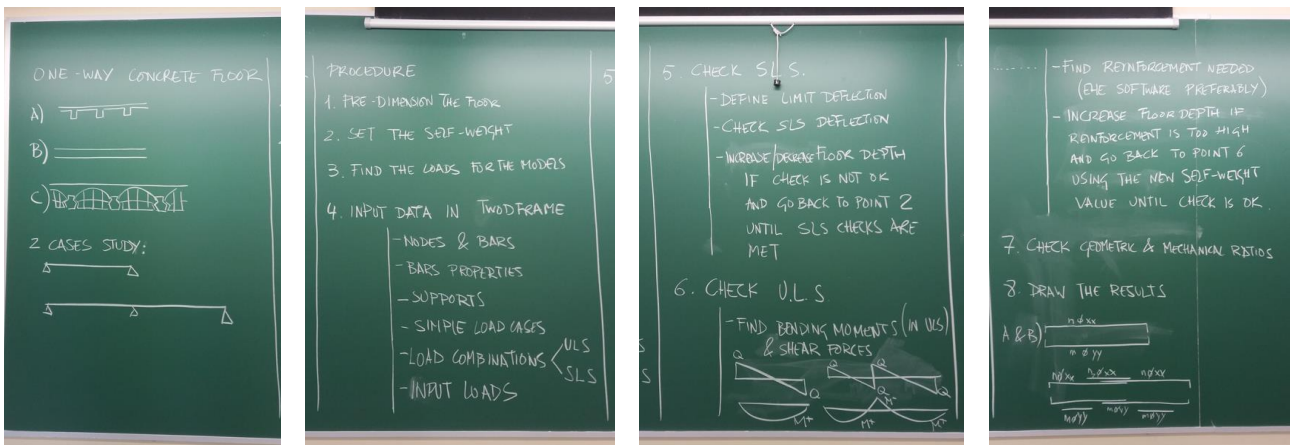 ONE-WAY CONCRETE FLOOR
A)
B)
C)
2 CASES STUDY:
PROCEDURE
1. PRE-DIMENSION THE FLOOR
2. SET THE SELF-WEIGHT
3. FIND THE LOADS FOR THE MODELS
4. INPUT DATA IN TWODFRAME
- NODES & BARS
- BARS PROPERTIES
- SUPPORTS
- SIMPLE LOAD CASES
- LOAD COMBINATIONS < ULS
SLS
- INPUT LOADS
5
5. CHECK SLS.
- DEFINE LIMIT DEFLECTION
- CHECK SLS DEFLECTION
- INCREASE/DECREASE FLOOR DEPTH
IF CHECK IS NOT OK
AND GO BACK TO POINT 2
UNTIL SLS CHECKS ARE
MET
6. CHECK U.L.S.
- FIND BENDING MOMENTS (IN ULS)
& SHEAR FORCES
S
S
Q Q Q
Q Q Q
M-
M+ M+ M+
- FIND REINFORCEMENT NEEDED
(EHE SOFTWARE PREFERABLY)
- INCREASE FLOOR DEPTH IF
REINFORCEMENT IS TOO HIGH
AND GO BACK TO POINT 6
USING THE NEW SELF-WEIGHT
VALUE UNTIL CHECK IS OK.
7. CHECK GEOMETRIC & MECHANICAL RATIOS
8. DRAW THE RESULTS
nφxx
A & B)
mφyy
nφxx nφxx nφxx
mφyy mφyy mφyy